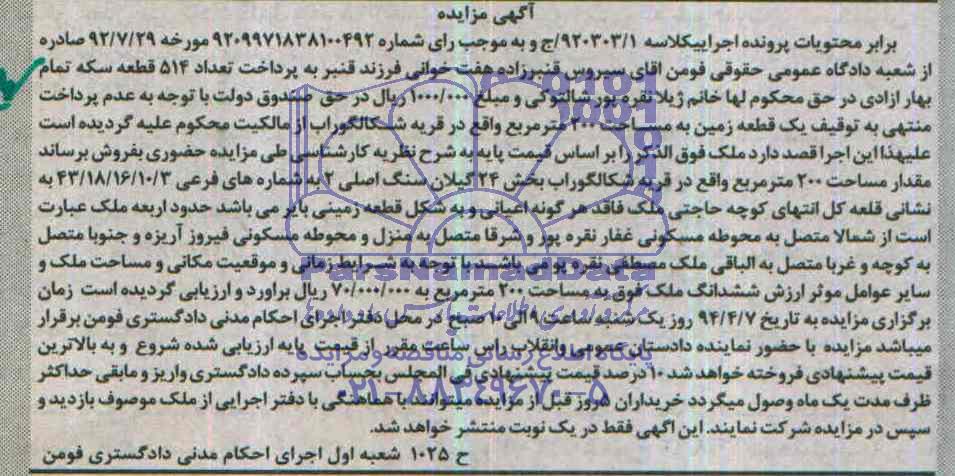 آگهی مزایده
برابر محتویات پرونده اجراییکلاسه ۹۲۰۳۰۳/۱/ج و به موجب رای شماره ۹۲۰۹۹۷۱۸۳۸۱۰۰۴۹۲ مورخه ۹۲/۷/۲۹ صادره
از شعبه دادگاه عمومی حقوقی فومن اقای سیروس قنبرزاده هفت خوانی فرزند قنبر به پرداخت تعداد ۵۱۴ قطعه سکه تمام
بهار ازادی در حق محکوم لها خانم ژیلا نقره پور شالتوکی و مبلغ ۱۰۰۰/۰۰۰ ریال در حق صندوق دولت با توجه به عدم پرداخت
منتهی به توقیف یک قطعه زمین به مساحت ۲۰۰ مترمربع واقع در قریه شکالگوراب از مالکیت محکوم علیه گردیده است
علیهذا این اجرا قصد دارد ملک فوق الذکر را بر اساس قیمت پایه به شرح نظریه کارشناسی طی مزایده حضوری بفروش برساند
مقدار مساحت ۲۰۰ مترمربع واقع در قریه شکالگوراب بخش ۲۴ گیلان سنگ اصلی ۲ به شماره های فرعی ۴۳/۱۸/۱۶/۱۰/۳ به
نشانی قلعه کل انتهای کوچه حاجتی ملک فاقد هر گونه اعیانی و به شکل قطعه زمینی بایر می باشد حدود اربعه ملک عبارت
است از شمالا متصل به محوطه مسکونی غفار نقره پور و شرقا متصل به منزل و محوطه مسکونی فیروز آریزه و جنوبا متصل
به کوچه و غربا متصل به الباقی ملک مصطفی نقره پو می باشد با توجه به شرایط زمانی و موقعیت مکانی و مساحت ملک و
سایر عوامل موثر ارزش ششدانگ ملک فوق به مساحت ۲۰۰ مترمربع به ۷۰/۰۰۰/۰۰۰ ریال براورد و ارزیابی گردیده است زمان
برگزاری مزایده به تاریخ ۹۴/۴/۷ روز یک شنبه ساعت ۹ الی ۱۰ صبح در محل دفتر اجرای احکام مدنی دادگستری فومن برقرار
میباشد مزایده با حضور نماینده دادستان عمومی وانقلاب راس ساعت مقرر از قیمت پایه ارزیابی شده شروع و به بالاترین
قیمت پیشنهادی فروخته خواهد شد ۱۰ درصد قیمت پیشنهادی فی المجلس بحساب سپرده دادگستری واریز و مابقی حداکثر
ظرف مدت یک ماه وصول میگردد خریداران ۵روز قبل از مزایده میتوانند با هماهنگی با دفتر اجرایی از ملک موصوف بازدید و
سپس در مزایده شرکت نمایند. این اگهی فقط در یک نوبت منتشر خواهد شد.
ح ۱۰۲۵ شعبه اول اجرای احکام مدنی دادگستری فومن
ParsNamadData
پایگاه اطلاع رسانی مناقصه و مزایده
۰۲۱-۸۸۳۴۹۶۷۰-۵